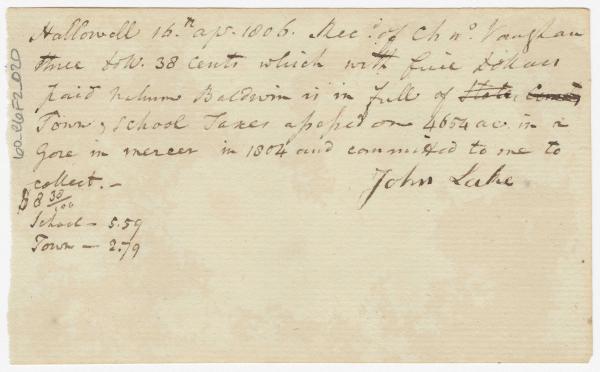 Hallowell 16.th apr. 1806. Rec.d of Ch.s Vaughan
three dolr. 38 cents which with five dollars
paid Nahum Baldwin is in full of State, County
Town & School Taxes assessed on 4654 ac. in a
Gore in mercer in 1804 and committed to me to
collect. –
John Lake
$8 38/100
School – 5.59
Town – 2.79
60.26F2020